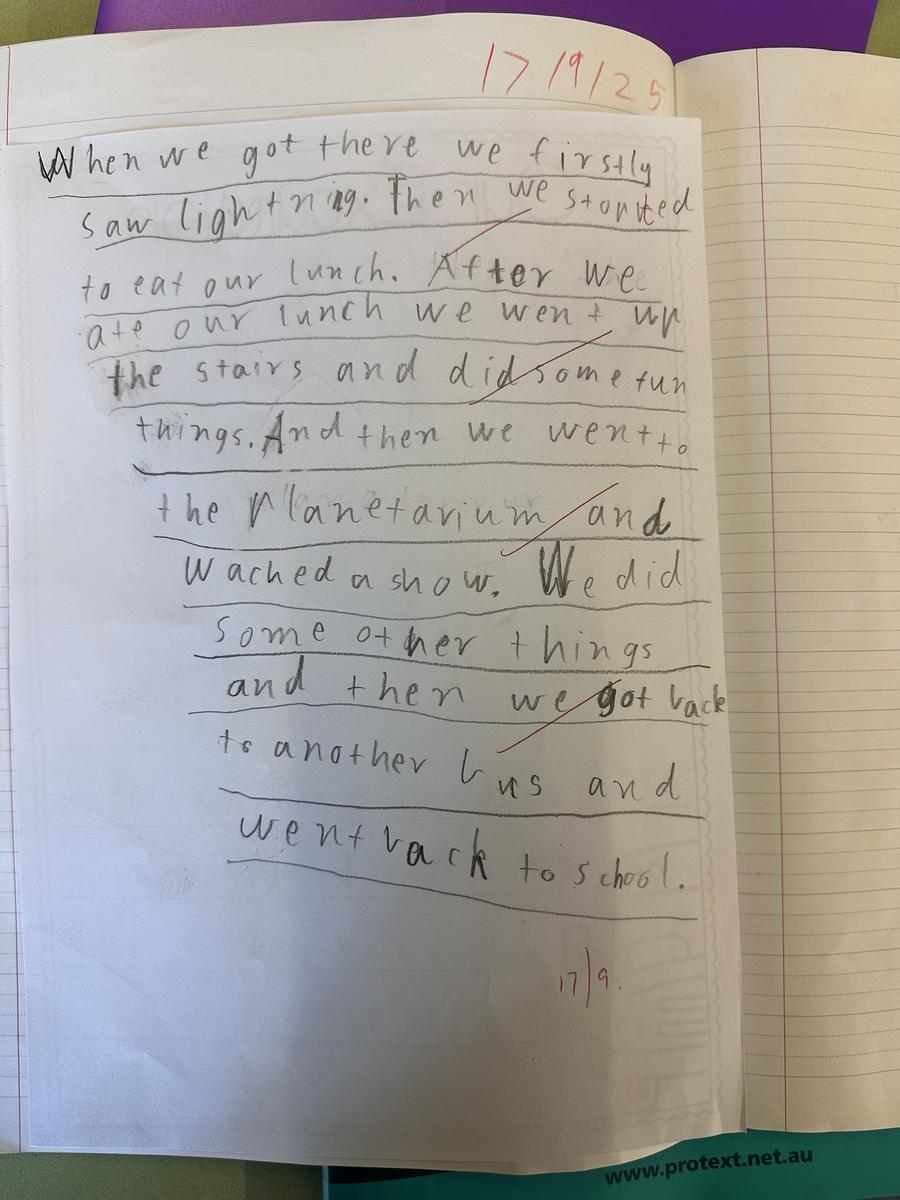 17/9/25
When we got there we firstly
saw lightning. Then we started
to eat our lunch. After we
ate our lunch we went up
the stairs and did some fun
things. And then we went to
the Planetarium and
wached a show. We did
some other things
and then we got back
to another bus and
went back to school.
17/9.
www.protext.net.au